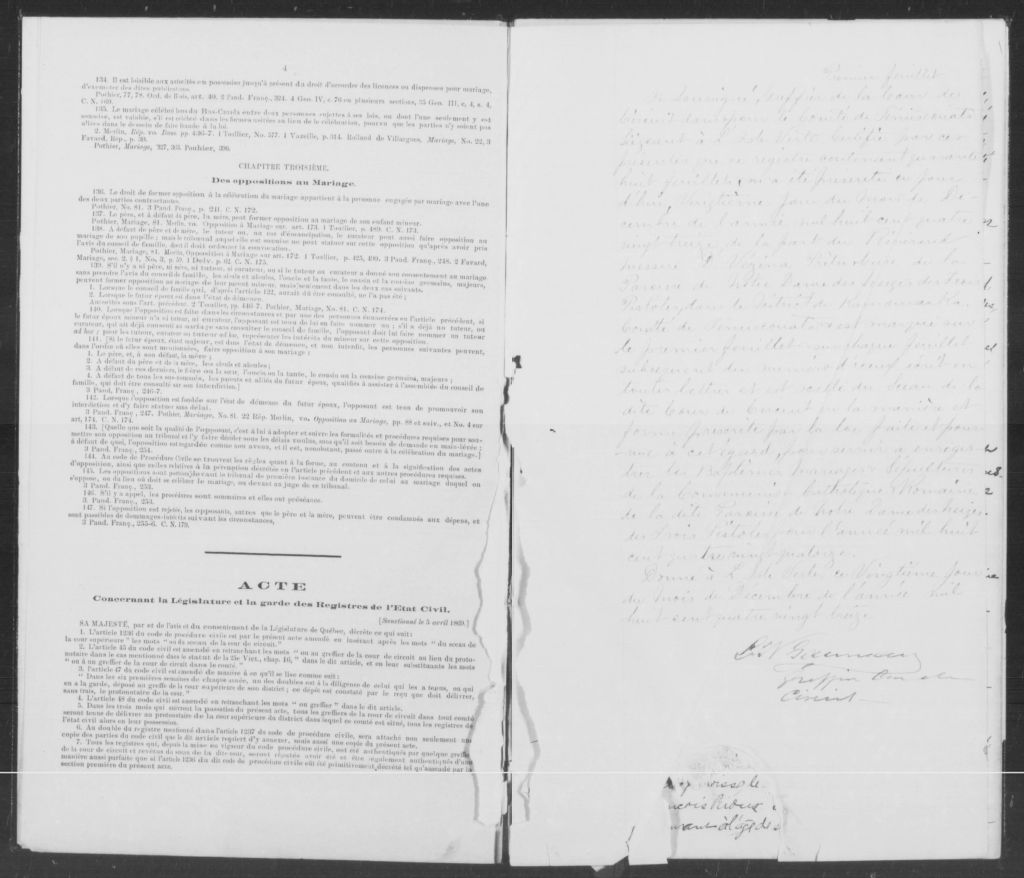 4
134. Il est loisible aux autorités en possession jusqu'à présent du droit d'accorder des licences ou dispenses pour mariage,
d'exempter des dites publications.
Pothier, 77, 78. Ord. de Blois, art. 40. 2 Pand. Franç., 324. 4 Geo. IV, c. 76 en plusieurs sections, 35 Geo. III, c. 4, s. 4,
C. N. 169.
135. Le mariage célébré hors du Bas-Canada entre deux personnes sujettes à ses lois, ou dont l'une seulement y est
soumise, est valable, s'il est célébré dans les formes usitées au lieu de la célébration, pourvu que les parties n'y soient pas
allées dans le dessein de faire fraude à la loi.
2. Merlin, Rép. vo. Bans, pp. 436-7. 1 Toullier, No. 577. 1 Vazeille, p. 314. Rolland de Villargues, Mariage, No. 22, 3
Favard, Rép., p. 30.
Pothier, Mariage, 327, 363.
CHAPITRE TROISIÈME.
Des oppositions au Mariage.
136. Le droit de former opposition à la célébration du mariage appartient à la personne engagée par mariage avec l'une
des deux parties contractantes.
Pothier, No. 81. 3 Pand Franç., p. 241. C. N. 172.
137. Le père, et à défaut du père, la mère, peut former opposition au mariage de son enfant mineur.
Pothier, Mariage, 81. Merlin, vo. Opposition à Mariage sur art. 173. 1 Toullier, p. 489. C. N. 173.
138. A défaut de père et de mère, le tuteur ou, au cas d'émancipation, le curateur peut aussi faire opposition au
mariage de son pupille; mais le tribunal auquel elle est soumise ne peut statuer sur cette opposition qu'après avoir pris
l'avis du conseil de famille, dont il doit ordonner la convocation.
Pothier, Mariage, 81. Merlin, Opposition à Mariage sur art. 172. 1 Toullier, p. 425, 490. 3 Pand Franç., 248. 2 Favard,
Mariage, sec. 2, § 1, No. 3, p. 59. 1 Delv. p. 62. C. N. 175.
139. S'il n'y a ni père, ni mère, ni tuteur, ni curateur, ou si le tuteur ou curateur a donné son consentement au mariage
sans prendre l'avis du conseil de famille, les aïeuls et aïeules, l'oncle et la tante, le cousin et la cousine germains, majeurs,
peuvent former opposition au mariage de leur parent mineur, mais seulement dans les deux cas suivants.
1. Lorsque le conseil de famille qui, d'après l'article 122, aurait dû être consulté, ne l'a pas été;
2. Lorsque le futur époux est dans l'état de démence.
Autorités sous l'art. précédent. 2 Toullier, pp. 446-7. Pothier, Mariage, No. 81. C. N. 174.
140. Lorsque l'opposition est faite dans les circonstances et par une des personnes énoncées en l'article précédent, si
le futur époux mineur n'a ni tuteur, ni curateur, l'opposant est tenu de lui en faire nommer un; s'il a déjà un tuteur, ou
curateur, qui ait déjà consenti au mariage sans consulter le conseil de famille, l'opposant doit lui faire nommer un tuteur
ad hoc; pour les tuteur, curateur ou tuteur ad hoc, représenter les intérêts du mineur sur cette opposition.
141. [Si le futur époux, étant majeur, est dans l'état de démence, et non interdit, les personnes suivantes peuvent,
dans l'ordre où elles sont mentionnées, faire opposition à son mariage:
1. Le père, et, à son défaut, la mère;
2. A défaut du père et de la mère, les aïeuls et aïeules;
3. A défaut de ces derniers, le frère ou la sœur, l'oncle ou la tante, le cousin ou la cousine germains, majeurs;
4. A défaut de tous les sus-nommés, les parents et alliés du futur époux, qualifiés à assister à l'assemblée du conseil de
famille, qui doit être consulté sur son interdiction.]
3 Pand. Franç., 246-7.
142. Lorsque l'opposition est fondée sur l'état de démence du futur époux, l'opposant est tenu de promouvoir son
interdiction et d'y faire statuer sans délai.
3 Pand. Franç., 247. Pothier, Mariage, No. 81. 22 Rép. Merlin, vo. Opposition au Mariage, pp. 88 et suiv., et No. 4 sur
art. 174. C. N. 174.
143. [Quelle que soit la qualité de l'opposant, c'est à lui à adopter et suivre les formalités et procédures requises pour sou-
mettre son opposition au tribunal et l'y faire décider sous les délais voulus, sans qu'il soit besoin de demande en main-levée;
à défaut de quoi, l'opposition est regardée comme non avenue, et il est, nonobstant, passé outre à la célébration du mariage.]
3 Pand. Franç., 254.
144. Au code de Procédure Civile se trouvent les règles quant à la forme, au contenu et à la signification des actes
d'opposition, ainsi que celles relatives à la péremption décrétée en l'article précédent et aux autres procédures requises.
145. Les oppositions sont portées devant le tribunal de première instance du domicile de celui au mariage duquel on
s'oppose, ou du lieu où doit se célébrer le mariage, ou devant un juge de ce tribunal.
3 Pand. Franç., 253.
146. S'il y a appel, les procédures sont sommaires et elles ont préséance.
3 Pand. Franç., 253.
147. Si l'opposition est rejetée, les opposants, autres que le père et la mère, peuvent être condamnés aux dépens, et
sont passibles de dommages-intérêts suivant les circonstances,
3 Pand. Franç., 255-6. C. N. 179.
ACTE
Concernant la Législature et la garde des Registres de l'Etat Civil.
[Sanctionné le 5 avril 1869.]
SA MAJESTÉ, par et de l'avis et du consentement de la Législature de Québec, décrète ce qui suit:
1. L'article 1236 du code de procédure civile est par le présent acte amendé en insérant après les mots "du sceau de
la cour supérieure" les mots "ou du sceau de la cour de circuit."
2. L'article 45 du code civil est amendé en retranchant les mots "ou au greffier de la cour de circuit au lieu du proto-
notaire dans le cas mentionné dans le statut de la 25e Vict., chap. 16," dans le dit article, et en leur substituant les mots
"ou à un greffier de la cour de circuit dans le comté."
3. L'article 47 du code civil est amendé de manière à ce qu'il se lise comme suit:
"Dans les six premières semaines de chaque année, un des doubles est à la diligence de celui qui les a tenus, ou qui
en a la garde, déposé au greffe de la cour supérieure de son district; ce dépôt est constaté par le reçu que doit délivrer,
sans frais, le protonotaire de la cour."
4. L'article 48 du code civil est amendé en retranchant les mots "ou greffier" dans le dit article.
5. Dans les trois mois qui suivront la passation du présent acte, tous les greffiers de la cour de circuit dans tout comté
seront tenus de délivrer au protonotaire de la cour supérieure du district dans lequel ce comté est situé, tous les registres de
l'état civil alors en leur possession.
6. Au double du registre mentionné dans l'article 1237 du code de procédure civile, sera attaché non seulement une
copie des parties du code civil que le dit article requiert d'y annexer, mais aussi une copie du présent acte.
7. Tous les registres qui, depuis la mise en vigueur du code procédure civile, ont été authentiqués par quelque greffier
de la cour de circuit et revêtus du sceau de la dite cour, seront réputés avoir été et être également authentiqués d'une
manière aussi parfaite que si l'article 1236 du dit code de procédure civile eût été primitivement décrété tel qu'amendé par la
section première du présent acte.
Premier feuillet
Je Soussigné, Greffier de la Cour de
Circuit dans et pour le Comté de Témiscouata
Siégeant à L'Isle Verte Certifie par ces
présentes que ce registre contenant quarante
huit feuillets m'a été présenté ce jour
d'hui, Vingtième jour du mois de Dé-
cembre de l'année mil huit cent quatre
vingt treize de la part du Révérend
messire
Paroisse de Notre Dame des Neiges des Trois
Pistoles, dans le District de Kamouraska
Comté de Témiscouata, est marqué sur
le premier feuillet et sur chaque feuillet
subséquent du numéro d'iceux écrit en
toutes lettres et du sceau de la
dite Cour de Circuit en la manière et
forme prescrite par la loi faite et pour-
vue à cet égard, pour servir à enregis-
trer les
de la Communion Catholique Romaine
de la dite Paroisse de Notre Dame des Neiges
des Trois Pistoles pour l'année mil huit
cent quatre vingt quatorze.
Donné à L'Isle Verte, ce Vingtième jour
du mois de Décembre de l'année mil
huit cent quatre vingt treize
Greffier Cour de
Circuit